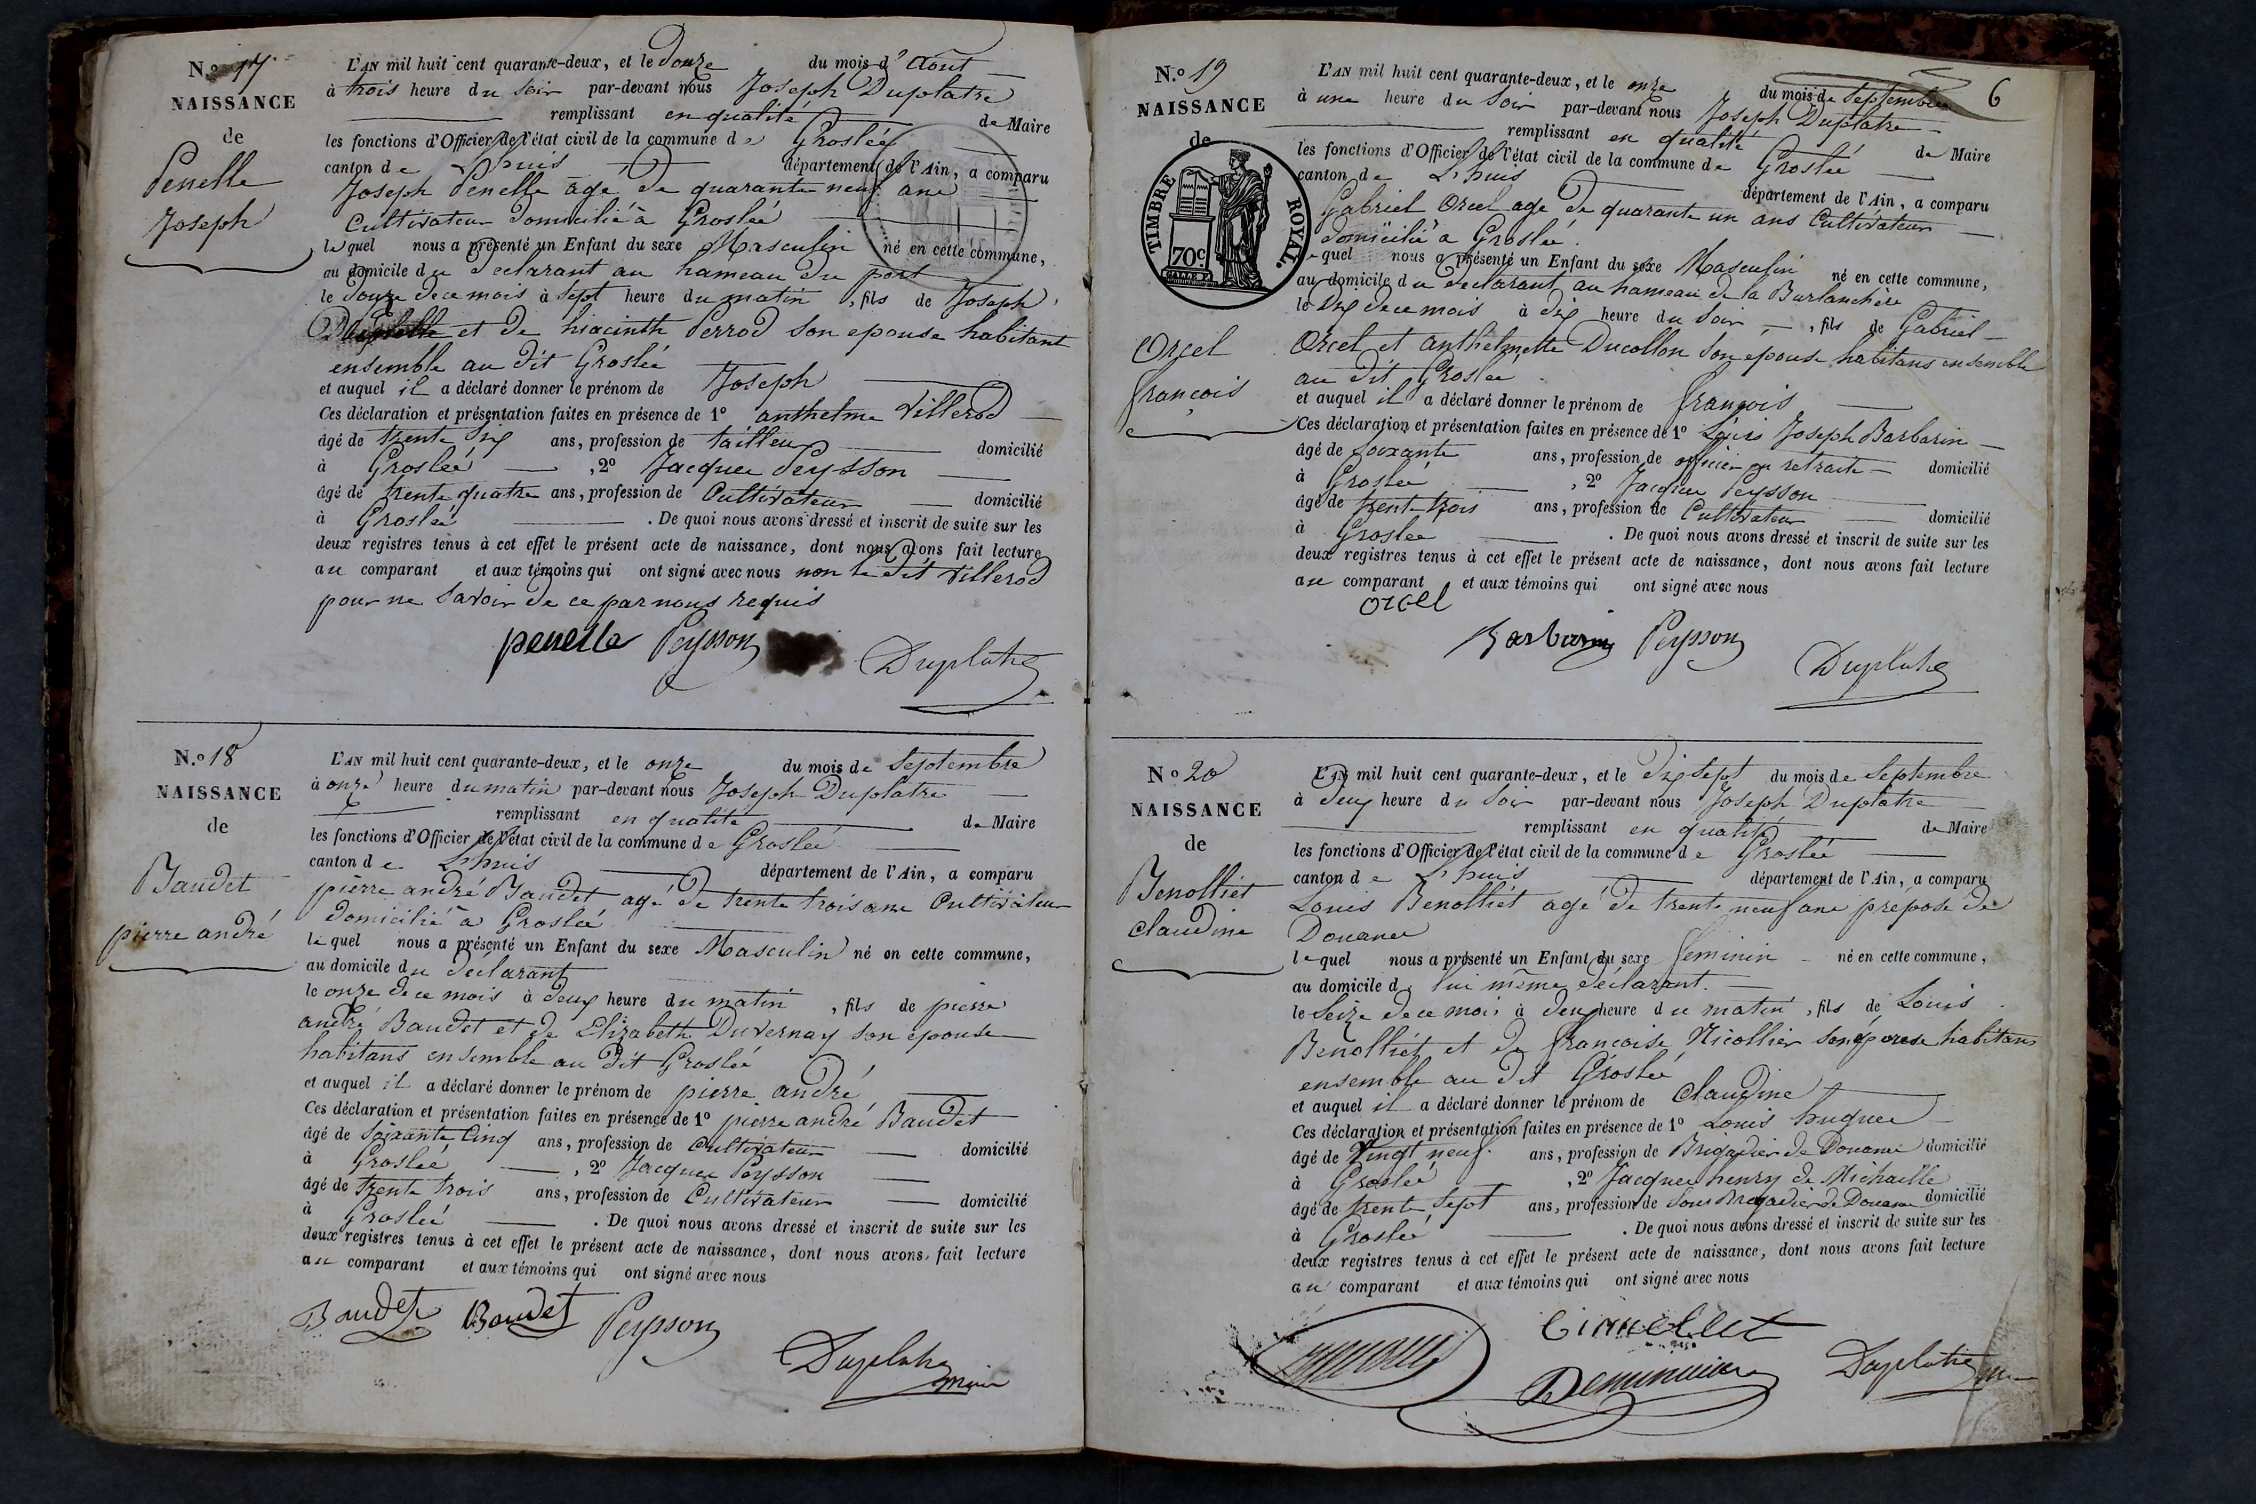 N.o 17
NAISSANCE
de
Penelle
Joseph
L'AN mil huit cent quarante-deux, et le Douze du mois d'Août
à trois heure du soir par-devant nous Joseph Duplatre
remplissant en qualité de Maire
les fonctions d'Officier de l'état civil de la commune de Groslée
canton de L'huis département de l'Ain, a comparu
Joseph Penelle agé de quarante neuf ans
Cultivateur domicilié à Groslée
lequel nous a présenté un Enfant du sexe Masculin né en cette commune,
au domicile du déclarant au hameau du port
le Douze de ce mois à Sept heure du matin, fils de Joseph
et de hiacinth Perrod son epouse habitant
ensemble au dit Groslée
et auquel il a déclaré donner le prénom de Joseph
Ces déclaration et présentation faites en présence de 1º anthelme Villerod
âgé de trente Six ans, profession de tailleur domicilié
à Groslée, 2º Jacques Peysson
âgé de trente quatre ans, profession de Cultivateur domicilié
à Groslée. De quoi nous avons dressé et inscrit de suite sur les
deux registres tenus à cet effet le présent acte de naissance, dont nous avons fait lecture
au comparant et aux témoins qui ont signé avec nous non le dit Villerod
pour ne savoir de ce par nous requis
penelle Peysson
Duplatre
N.o 18
NAISSANCE
de
Baudet
pierre andré
L'AN mil huit cent quarante-deux, et le onze du mois de Septembre
à onze heure du matin par-devant nous Joseph Duplatre
remplissant en qualité de Maire
les fonctions d'Officier de l'état civil de la commune de Groslée
canton de L'huis département de l'Ain, a comparu
pierre andré Baudet agé de trente trois ans Cultivateur
domicilié à Groslée
lequel nous a présenté un Enfant du sexe Masculin né en cette commune,
au domicile du déclarant
le onze de ce mois à deux heure du matin, fils de pierre
andré Baudet et de Elizabeth Duvernay son epouse
habitans ensemble au dit Groslée
et auquel il a déclaré donner le prénom de pierre andré
Ces déclaration et présentation faites en présence de 1º pierre andré Baudet
âgé de Soixante Cinq ans, profession de Cultivateur domicilié
à Groslée, 2º Jacques Peysson
âgé de trente trois ans, profession de Cultivateur domicilié
à Groslée. De quoi nous avons dressé et inscrit de suite sur les
deux registres tenus à cet effet le présent acte de naissance, dont nous avons fait lecture
au comparant et aux témoins qui ont signé avec nous
Baudet Baudet Peysson
Duplatre
maire
6
N.o 19
NAISSANCE
de
TIMBRE ROYAL.
70c.
Orcel
françois
L'AN mil huit cent quarante-deux, et le onze du mois de Septembre
à une heure du Soir par-devant nous Joseph Duplatre
remplissant en qualité de Maire
les fonctions d'Officier de l'état civil de la commune de Groslée
canton de L'huis département de l'Ain, a comparu
Gabriel Orcel age de quarante un ans Cultivateur
domicilié à Groslée.
lequel nous a présenté un Enfant du sexe Masculin né en cette commune,
au domicile du déclarant au hameau de la Burlanchère
le Dix de ce mois à dix heure du Soir, fils de Gabriel
Orcel et anthelmette Ducollon Son epouse habitans ensemble
au dit Groslée
et auquel il a déclaré donner le prénom de françois
Ces déclaration et présentation faites en présence de 1º Louis Joseph Barbarin
âgé de Soixante ans, profession de officier en retraite domicilié
à Groslée, 2º Jacques Peysson
âgé de trente trois ans, profession de Cultivateur domicilié
à Groslée. De quoi nous avons dressé et inscrit de suite sur les
deux registres tenus à cet effet le présent acte de naissance, dont nous avons fait lecture
au comparant et aux témoins qui ont signé avec nous
orcel
Barbarin Peysson
Duplatre
N.o 20
NAISSANCE
de
Benolliet
Claudine
L'AN mil huit cent quarante-deux, et le Dix Sept du mois de Septembre
à deux heure du Soir par-devant nous Joseph Duplatre
remplissant en qualité de Maire
les fonctions d'Officier de l'état civil de la commune de Groslée
canton de L'huis département de l'Ain, a comparu
Louis Benolliet agé de trente neuf ans préposé de
Douanes
lequel nous a présenté un Enfant du sexe feminin né en cette commune,
au domicile de lui même déclarant.
le Seize de ce mois à deux heure du matin, fils de Louis
Benolliet et de françoise Nicollier son épouse habitans
ensemble au dit Groslée
et auquel il a déclaré donner le prénom de Claudine
Ces déclaration et présentation faites en présence de 1º Louis hugues
âgé de Vingt neuf ans, profession de Brigadier de Douane domicilié
à Groslée, 2º Jacques henry de Michaille
âgé de trente Sept ans, profession de Sous Brigadier de Douane domicilié
à Groslée. De quoi nous avons dressé et inscrit de suite sur les
deux registres tenus à cet effet le présent acte de naissance, dont nous avons fait lecture
au comparant et aux témoins qui ont signé avec nous
Duplatre